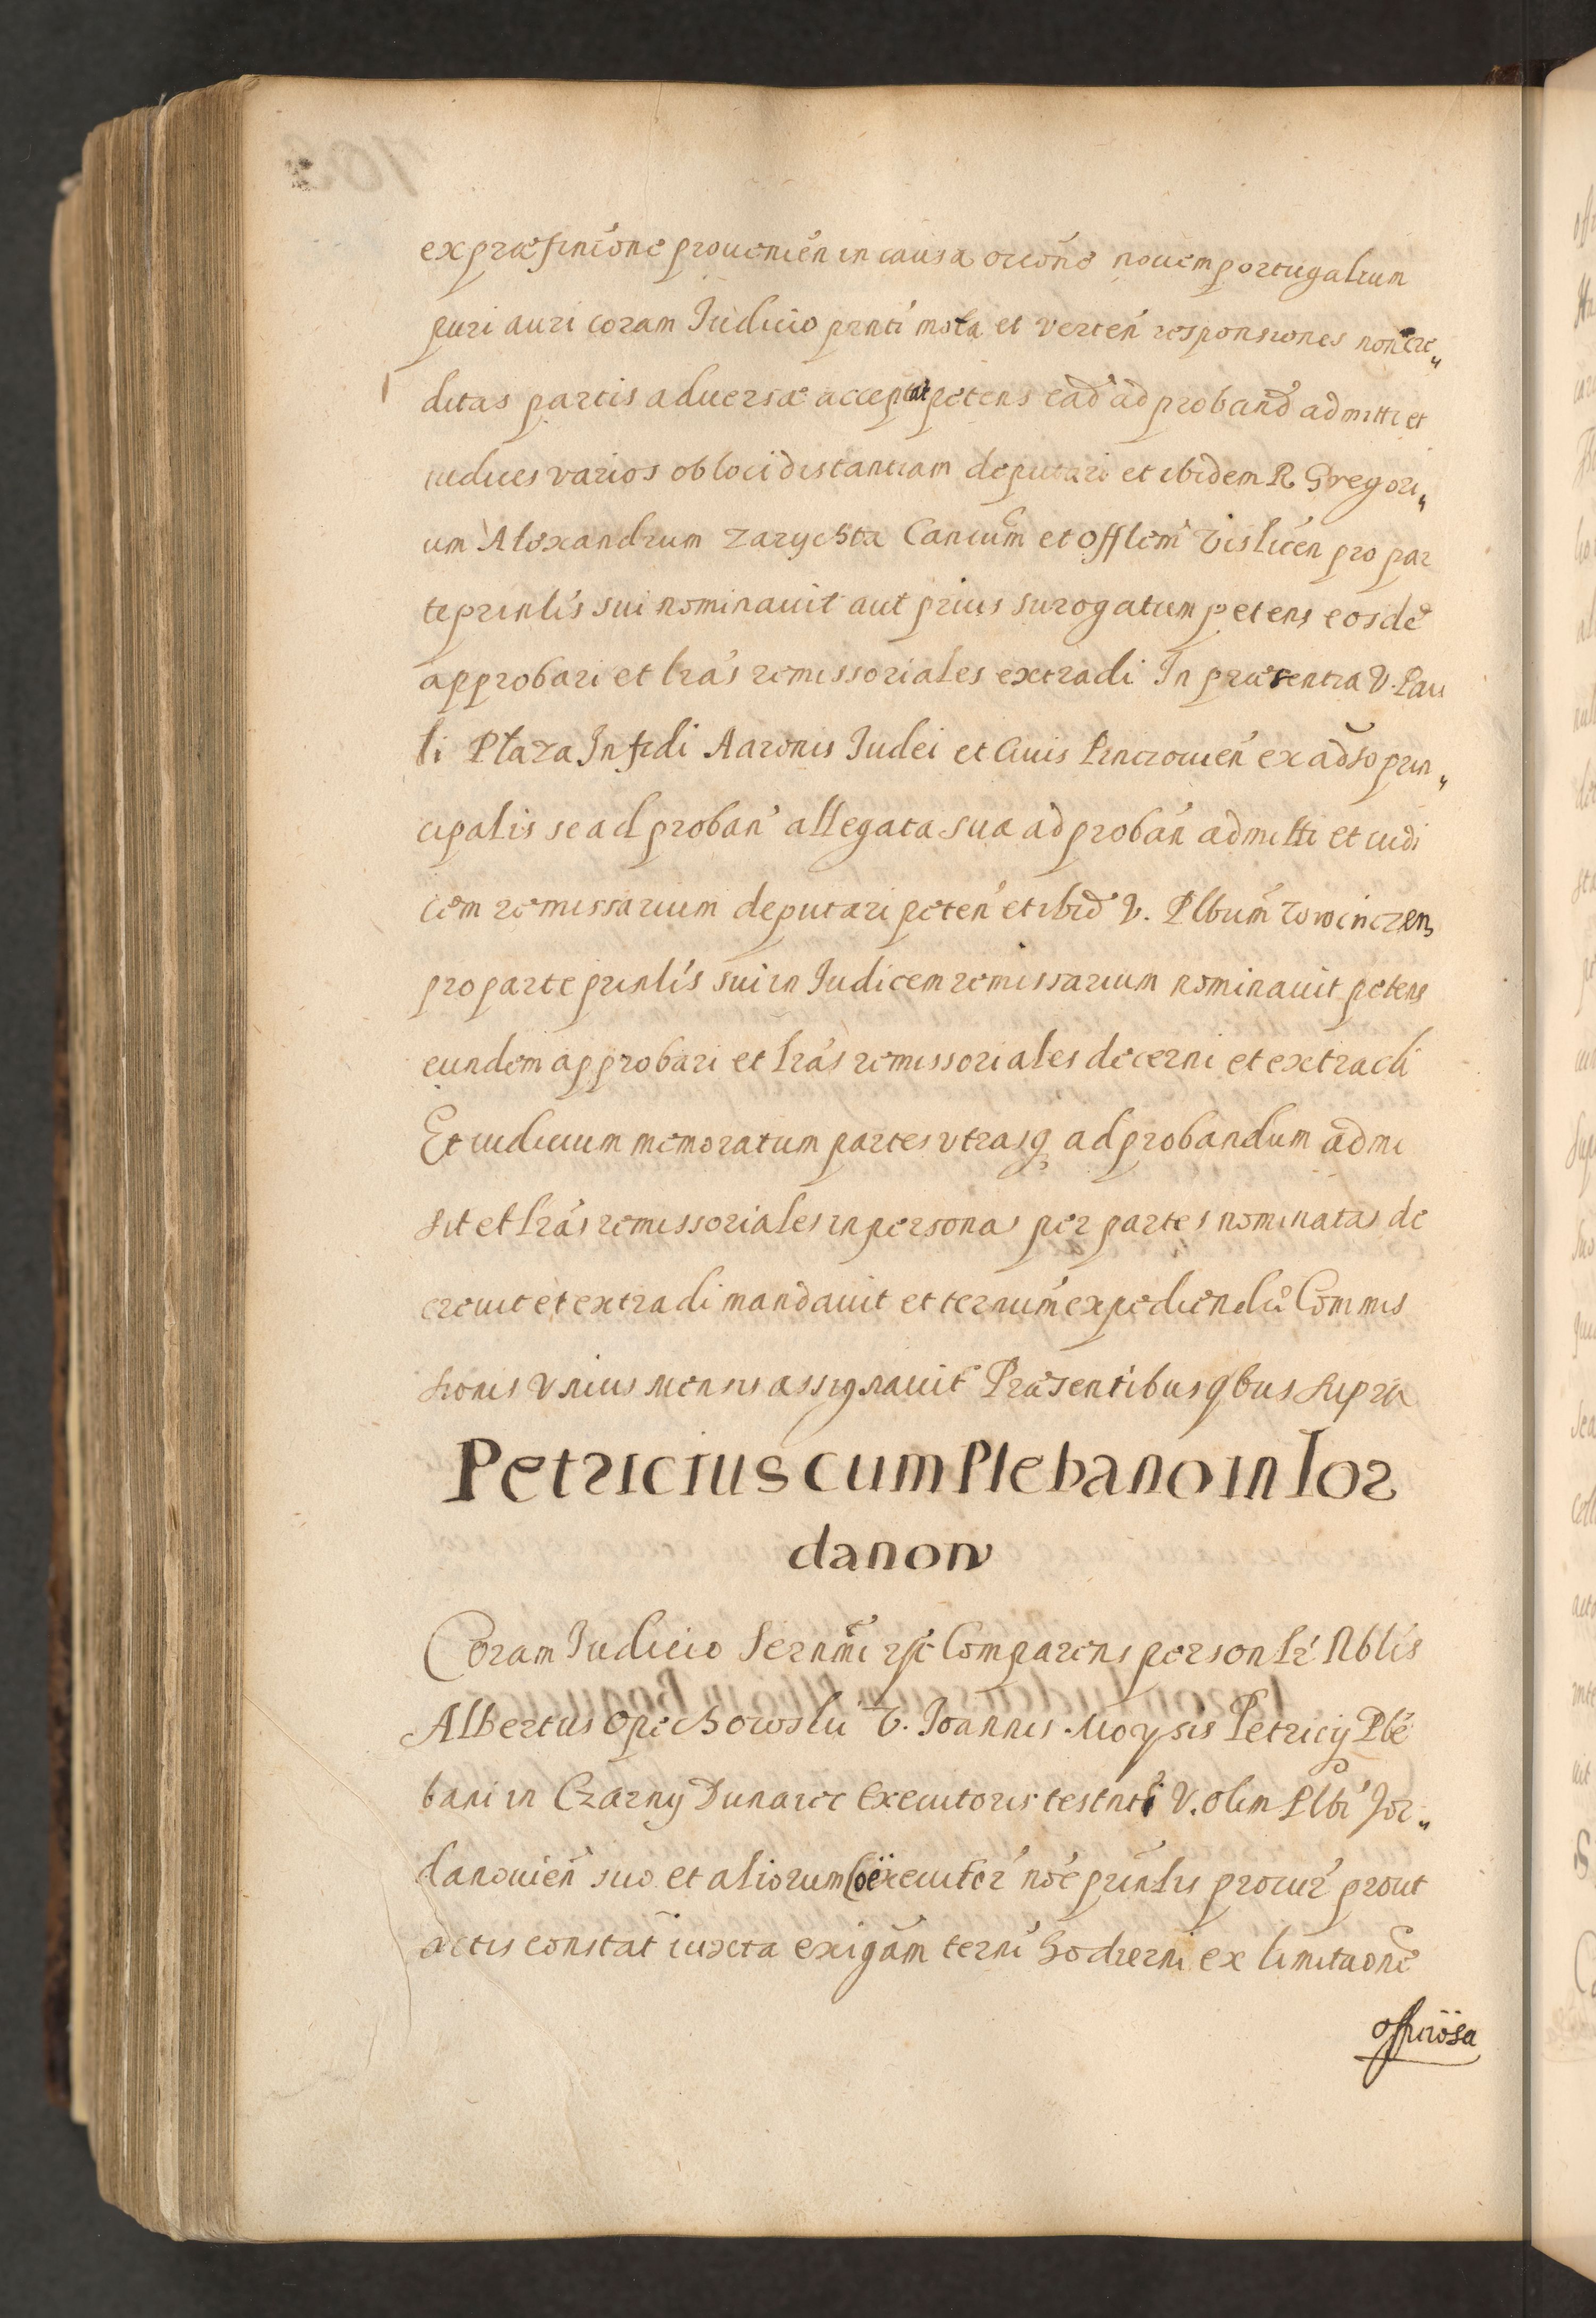 ex præfinióne prouenién in causa occóne nouem portugalium
puri auri coram Iudicio prnti mota et vertén responsiones non cre„
ditas partis aduersæ acceptat petens ead ad proband admitti et
iudices varios ob loci distantiam deputari et ibidem R Gregori„
um Alexandrum Zarychta Canicum et Offlem Vislicén pro par
te prinlis sui nominauit aut prius surogatum petens eosde
approbari et lrás remissoriales extradi In præsentia V. Pau
li Plaza Infidi Aaronis Iudei et Ciuis Pinczouién ex adso prin„
cipalis se ad probań allegata sua ad probán admitti et iudi
cem remissarium deputari petén et ibid V. Plbum Zowinczen
pro parte prinlis sui in Iudicem remissarium nominauit petens
eundem approbari et lrás remissoriales decerni et extradi
Et iudicium memoratum partes vtrasq ad probandum admi
sit et lrás remissoriales in personas per partes nominatas de
creuit et extradi mandauit et ternum expediendæ Commis
sionis vnius mensis assignauit Præsentibus qbus supra
Petricius cum Plebano in Ior
danow
Coram Iudicio Sernmi rsc Comparens personlr Nblis
Albertus Opechowski V. Ioannis Moysis Petricÿ Plé
bani in Czarny Dunaiec Executoris testnti V. olim Plbi Ior„
danouień suo et aliorum Coëxecutor nóe prinlis procur prout
actis constat iuxta exigam terni hodierni ex limitaone
officiosa